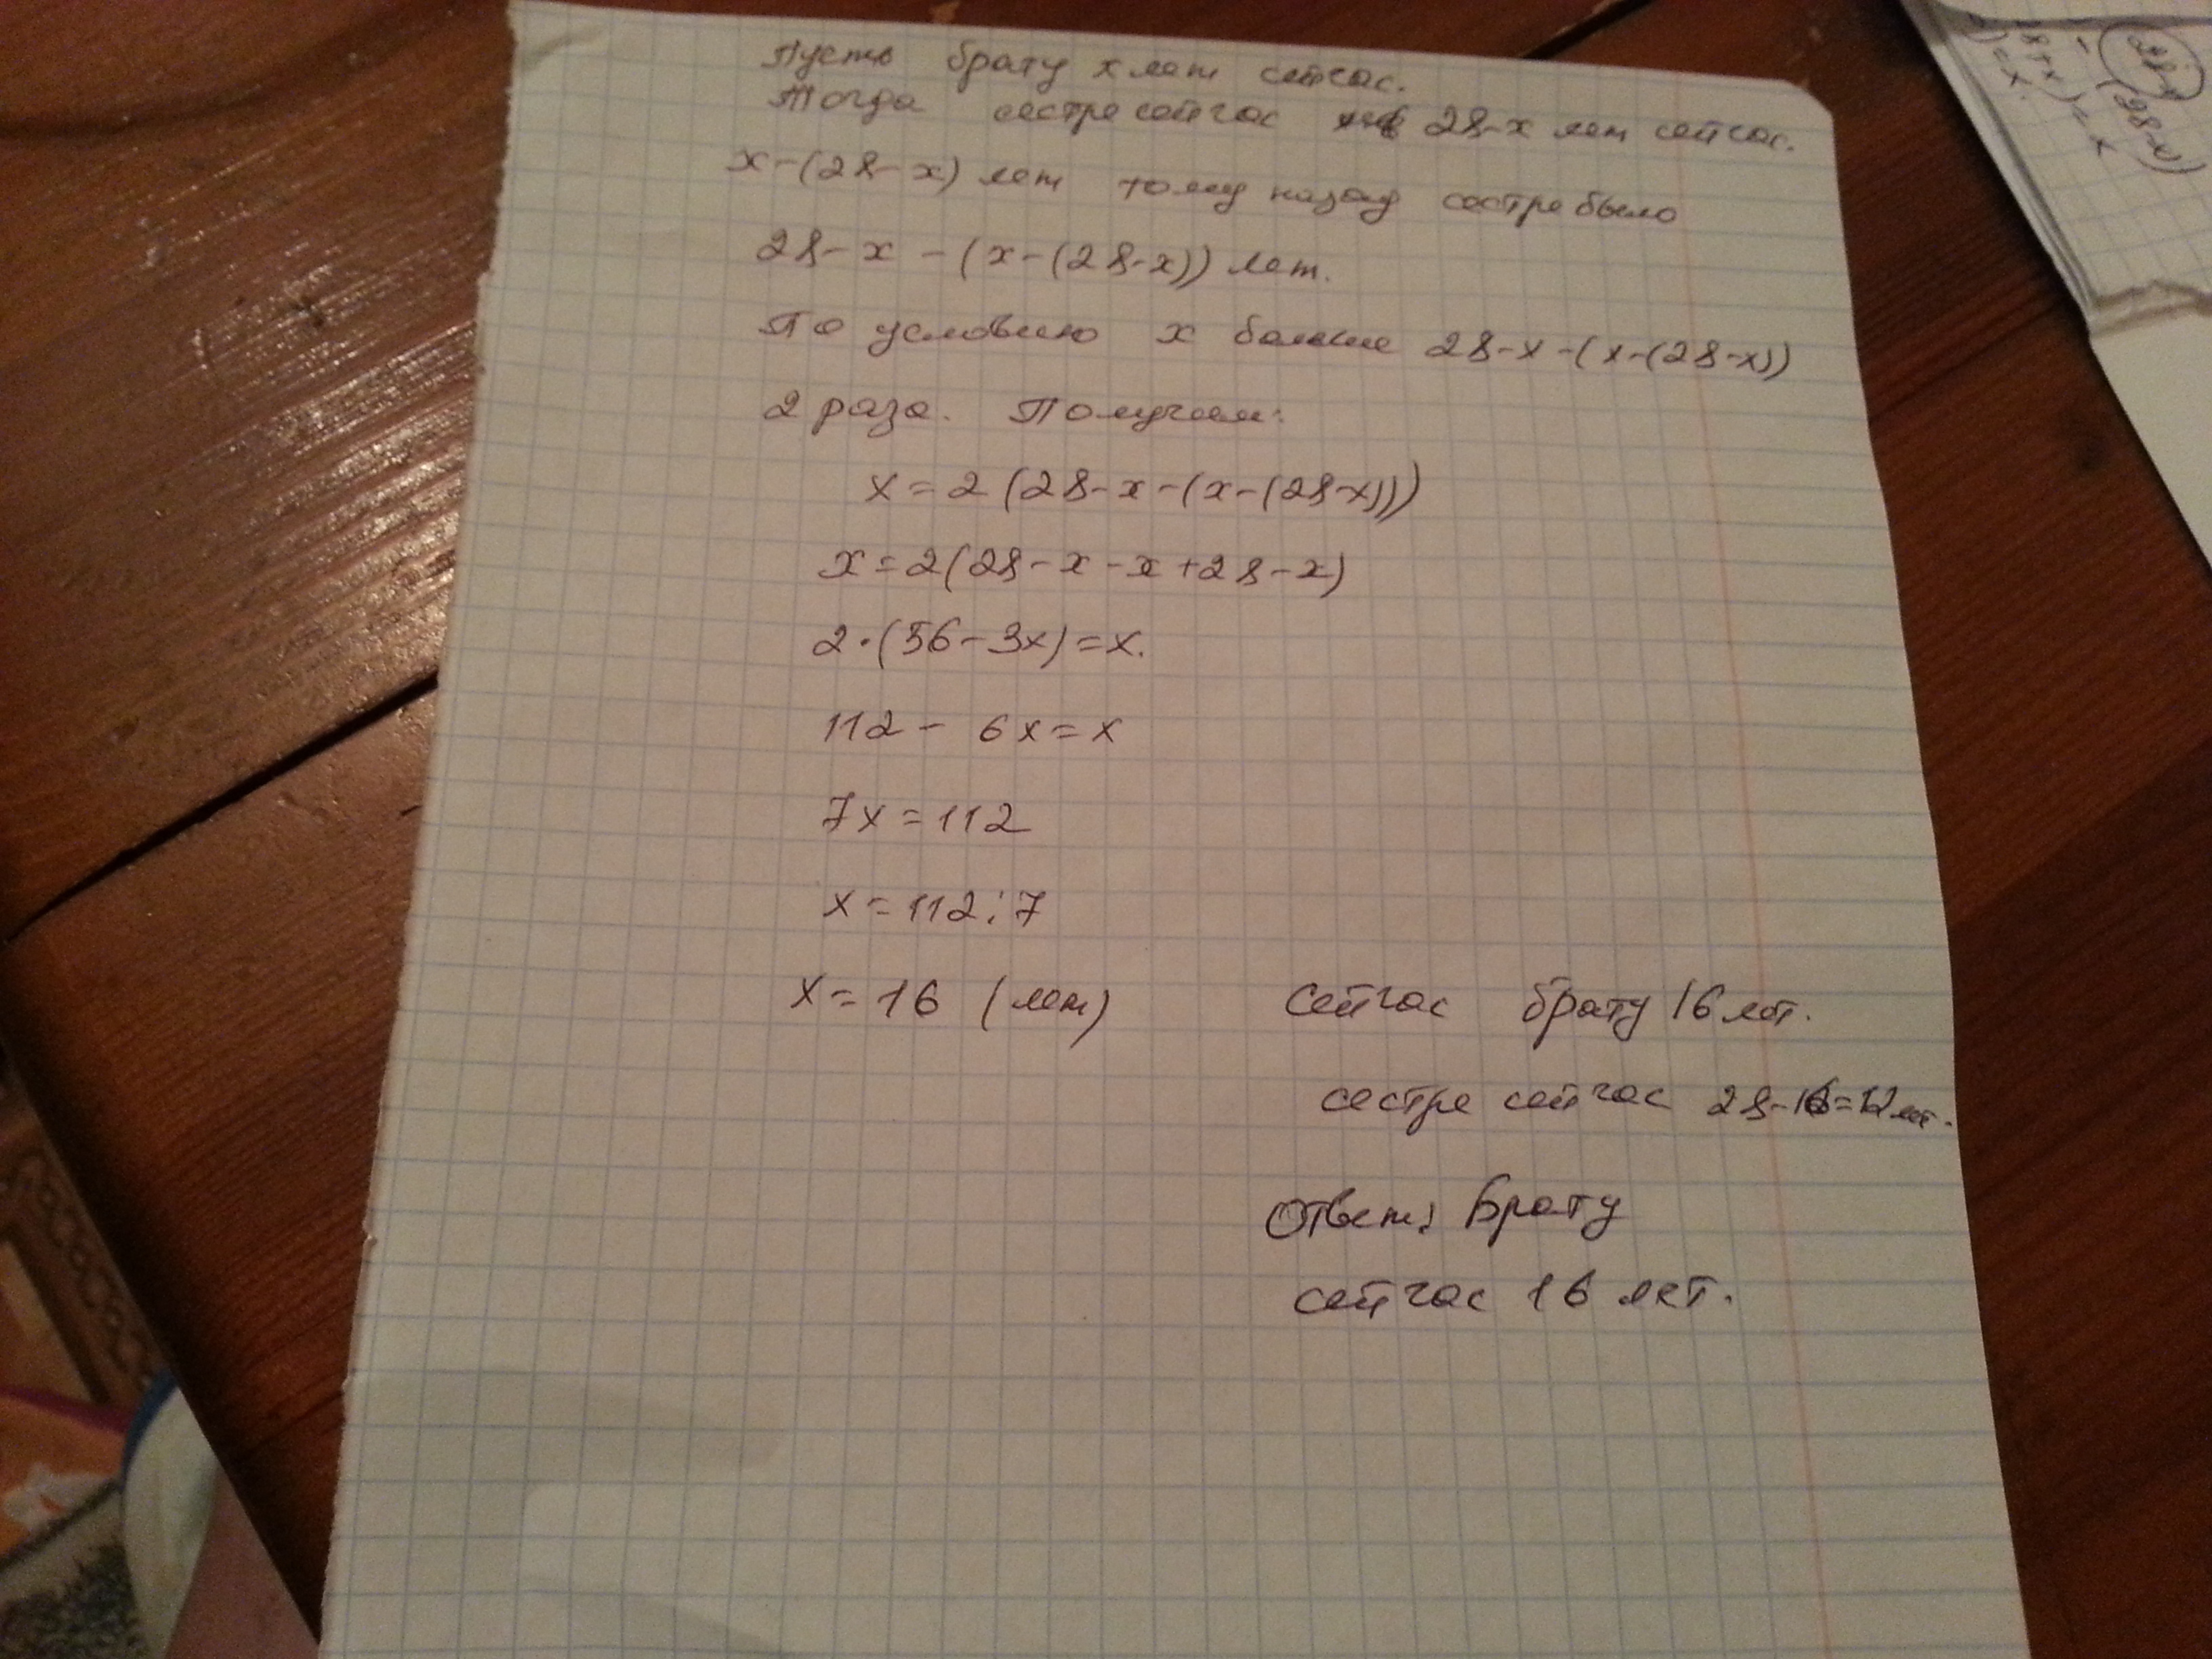 Пусть брату x лет сейчас.
Тогда сестре сейчас 28-x лет сейчас.
x-(28-x) лет тому назад сестре было
28-x-(x-(28-x)) лет.
По условию x больше 28-x-(x-(28-x))
2 раза. Получаем:
x=2(28-x-(x-(28-x)))
x=2(28-x-x+28-x)
2·(56-3x)=x.
112-6x=x
7x=112
x=112:7
x=16 (лет) Сейчас брату 16 лет.
сестре сейчас 28-16=12 лет.
Ответ: Брату
сейчас 16 лет.
(28-x)